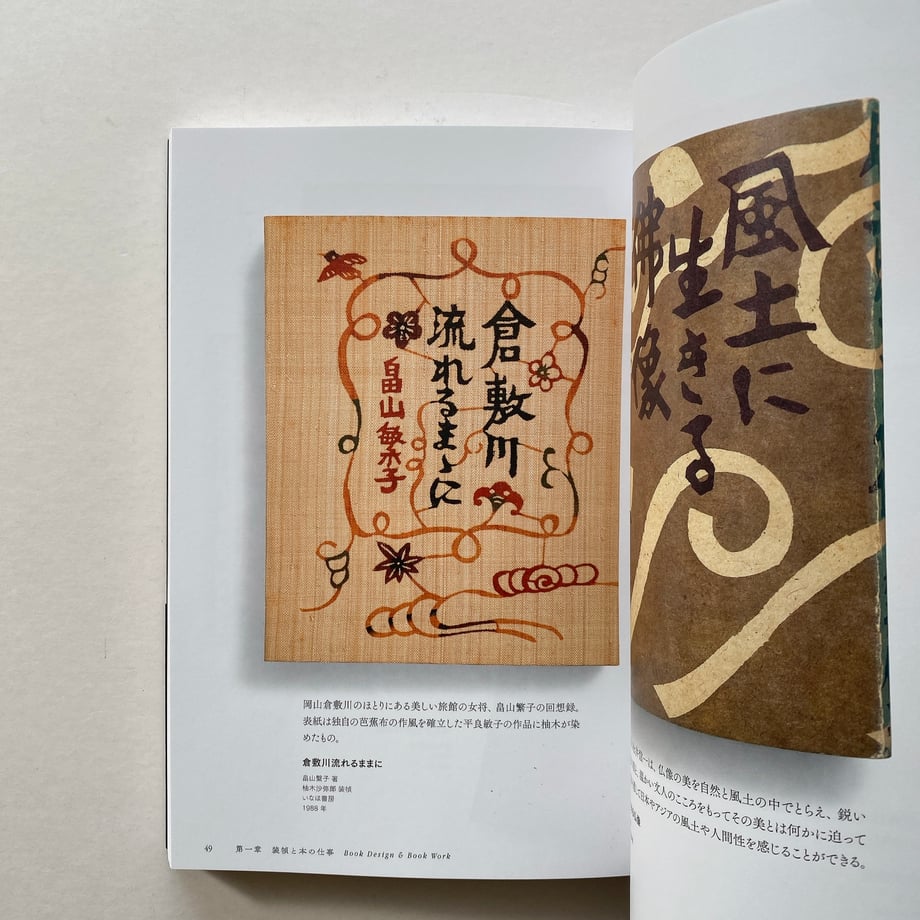 倉敷川
流れるまゝに
畠山繁子
岡山倉敷川のほとりにある美しい旅館の女将、畠山繁子の回想録。
表紙は独自の芭蕉布の作風を確立した平良敏子の作品に柚木が染
めたもの。
倉敷川流れるままに
畠山繁子 著
柚木沙弥郎 装幀
いなほ書房
1988 年
49 第一章 装幀と本の仕事 Book Design & Book Work
風土に
生きる
佛像
は、仏像の美を自然と風土の中でとらえ、鋭い
文人のこころをもってその美とは何かに迫って
て日本やアジアの風土や人間性を感じることができる。